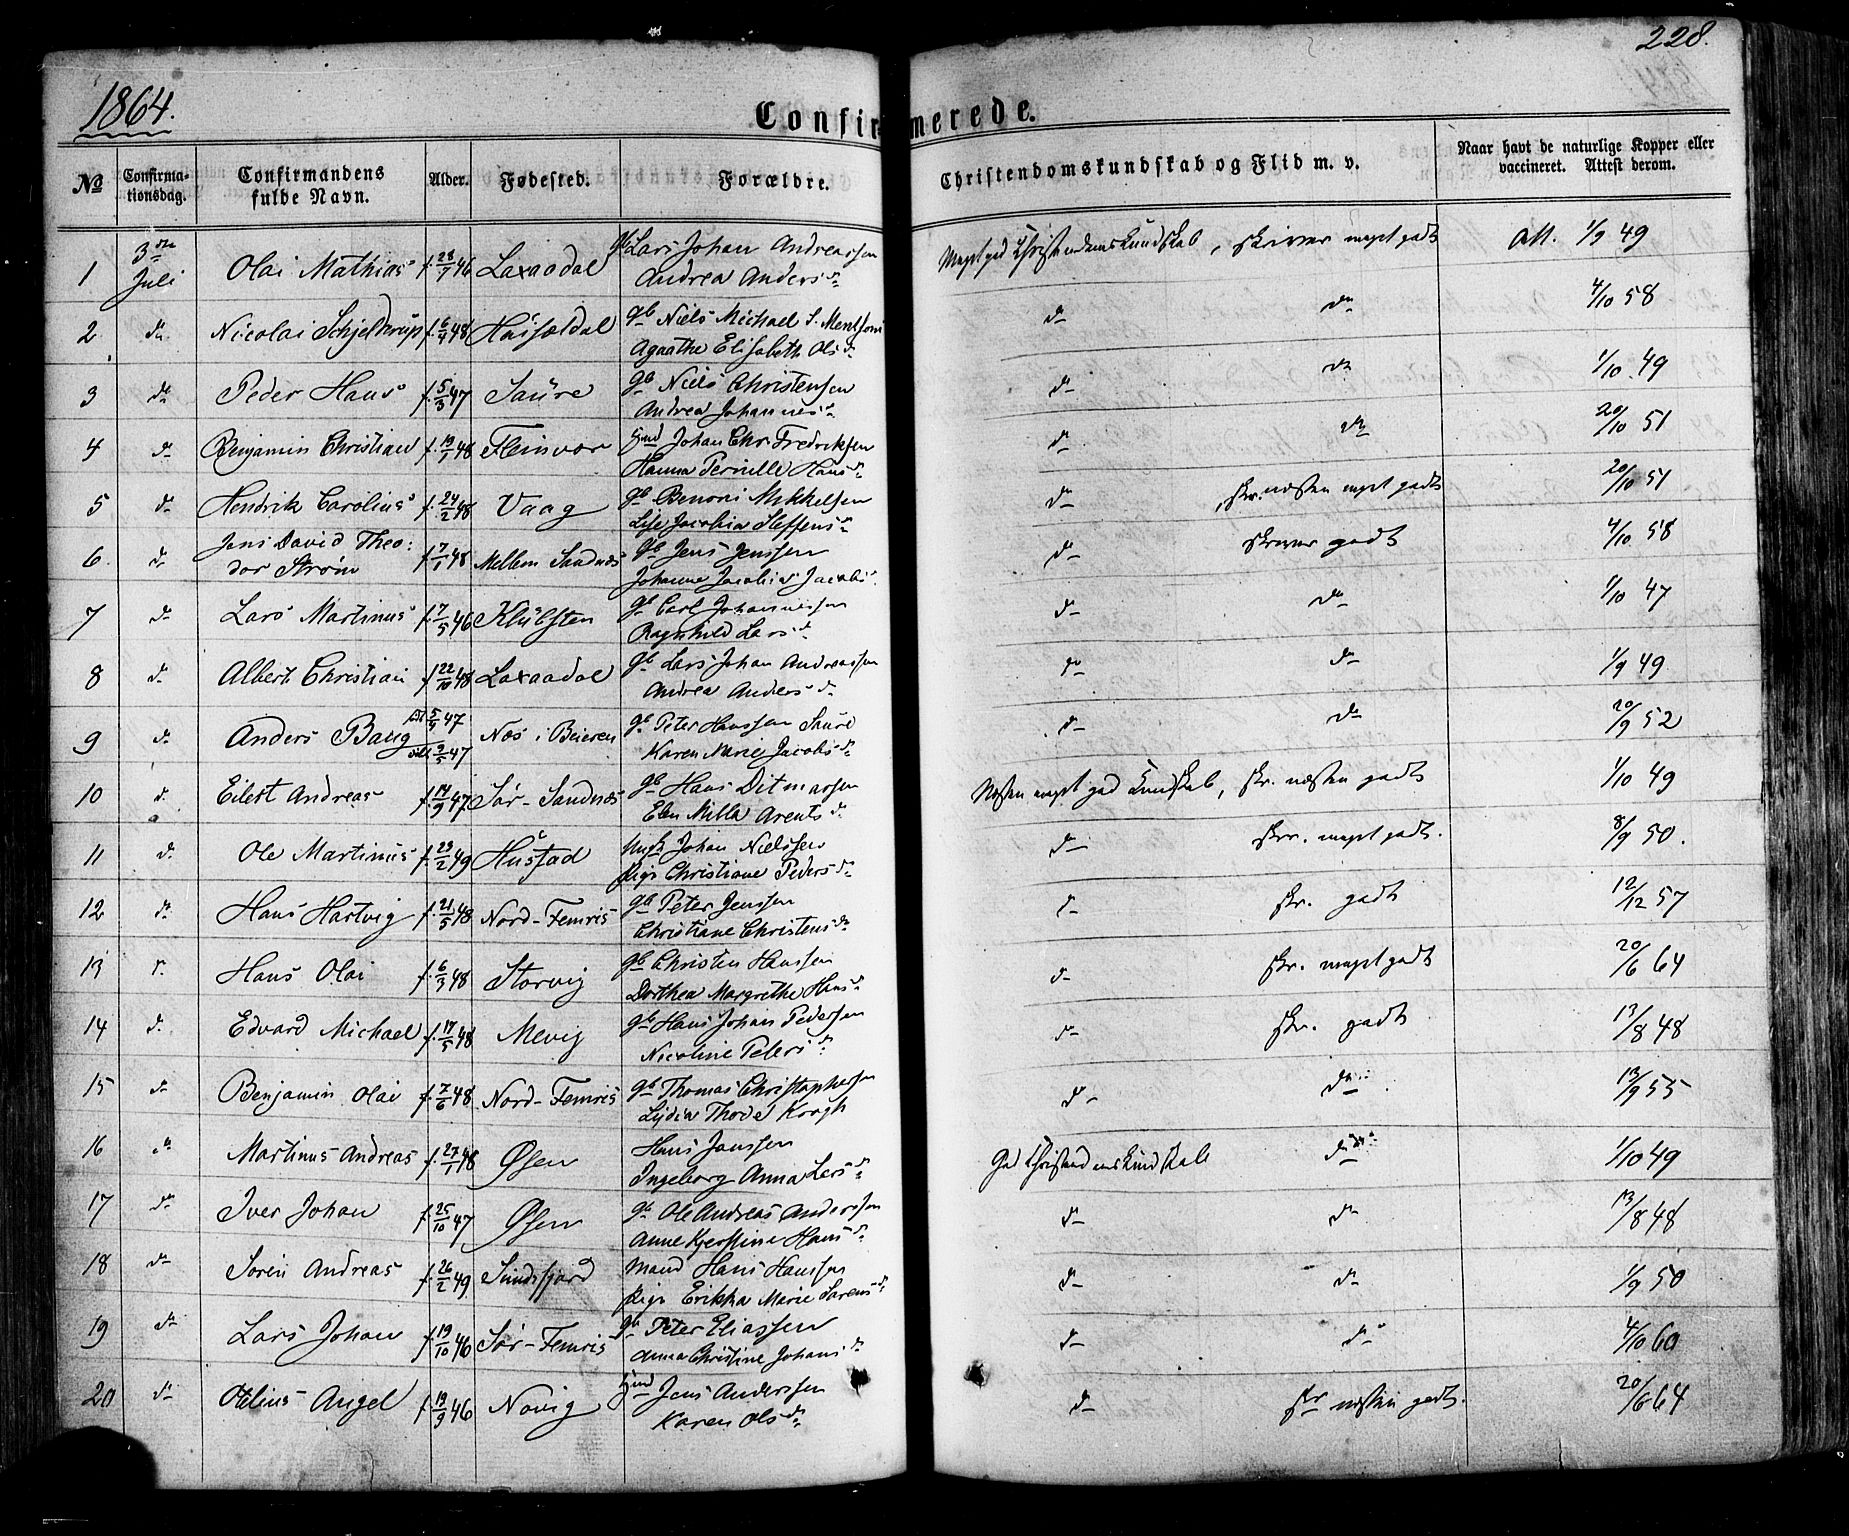 1864.
228.
Confirmerede.
No
Confirma-
tionsdag.
Confirmandens
fulde Navn.
Alder.
Fødested.
Forældre.
Christendomskundskab og Flid m. v.
Naar havt de naturlige Kopper eller
vaccineret. Attest derom.
1 3die Juli Olai Mathias f. 28/7 46 Laxaadal Gb Lars Johan Andreassen
Andrea Andersd. Meget god Christendomskundskab, skriver meget godt Att. 1/9 49
2. do Nicolai Schjelderup f. 6/4 48 Gb Niels Michael S. Mentsen
Agaathe Elisabeth Olsd. do do 4/10 58
3 do Peder Hans f. 5/3 47 Saure Gb Niels Christensen
Andrea Johannesd. do do 1/10 49
4 do Benjamin Christian f. 19/1 48 Fleinvær Hmd Johan Chr. Fredriksen
Hanna Pernille Hansd. do do 20/10 51
5 do Hendrik Carolius f. 24/2 48 Vaag Gb Benoni Mikkelsen
Lise Jacobia Steffensd. do skr. næsten meget godt 20/10 51
6. do Jens David Theo:
dor Strøm f. 7/1 48 Mellem Sandnæs Gb Jens Jenssen
Johanna Jacobia Jacobs. do skriver godt 4/10 58
7 do Lars Martinus f. 7/5 46 Klubsten Gb Carl Johannessen
Ragnhild Larsd. do do 1/10 47
8 do Albert Christian f. 22/10 48 Laxaadal Gb Lars Johan Andreassen
Andrea Andersd. do do 1/9 49
9 do Anders Baug 47
47 Næs i Beieren Gb Peter Hanssen Saure
Karen Marie Jacobsd. do do 20/9 52
10 do Eilert Andreas f. 14/9 47 Sør-Sandnæs Gb Hans Ditmarsen
Elen Milla Arentsd. Næsten meget god Kundskab, skr. næsten godt 1/10 49
11 do Ole Martinus f. 23/2 49 Hustad Ungk Johan Nielssen
Pige Christiane Pedersd. do skr. meget godt. 8/9 50.
12 do Hans Hartvig f. 21/5 48 Nord-Femris Gb Peter Jenssen
Christiane Christensd. do skr. godt 12/12 57
13 do Hans Olai f. 6/3 48 Storvig Gb Christen Hanssen
Dorthea Margrethe Hansd. do skr. meget godt 20/6 64
14 do Edvard Michael f. 17/5 48 Mevig Gb Hans Johan Pedersen
Nicoline Petersd. do skr. godt 13/8 48
15 do Benjamin Olai f. 7/6 48 Nord-Femris Gb Thomas Christophersen
Lydia Thode Krogh do do 13/9 55
16 do Martinus Andreas f. 27/1 48 Øsen Hans Janssen
Ingeborg Anna Larsd. God Christendomskundskab do 1/10 49
17 do Iver Johan f. 25/10 47 Øsen Gb Ole Andreas Anderssen
Anne Kjerstina Hansd. do do 13/8 48
18 do Søren Andreas f. 26/2 49 Sundsfjord Mand Hans Hanssen
Pige Erikka Marie Sørensd. do do 1/9 50
19 do Lars Johan f. 19/10 46 Sør-Femris Gb Peter Eliassen
Anna Christine Johansd. do do 4/10 60
20 do Otelius Angel f. 19/9 46 Novig Hmd Jens Anderssen
Karen Olsd. do skr næsten godt. 20/6 64